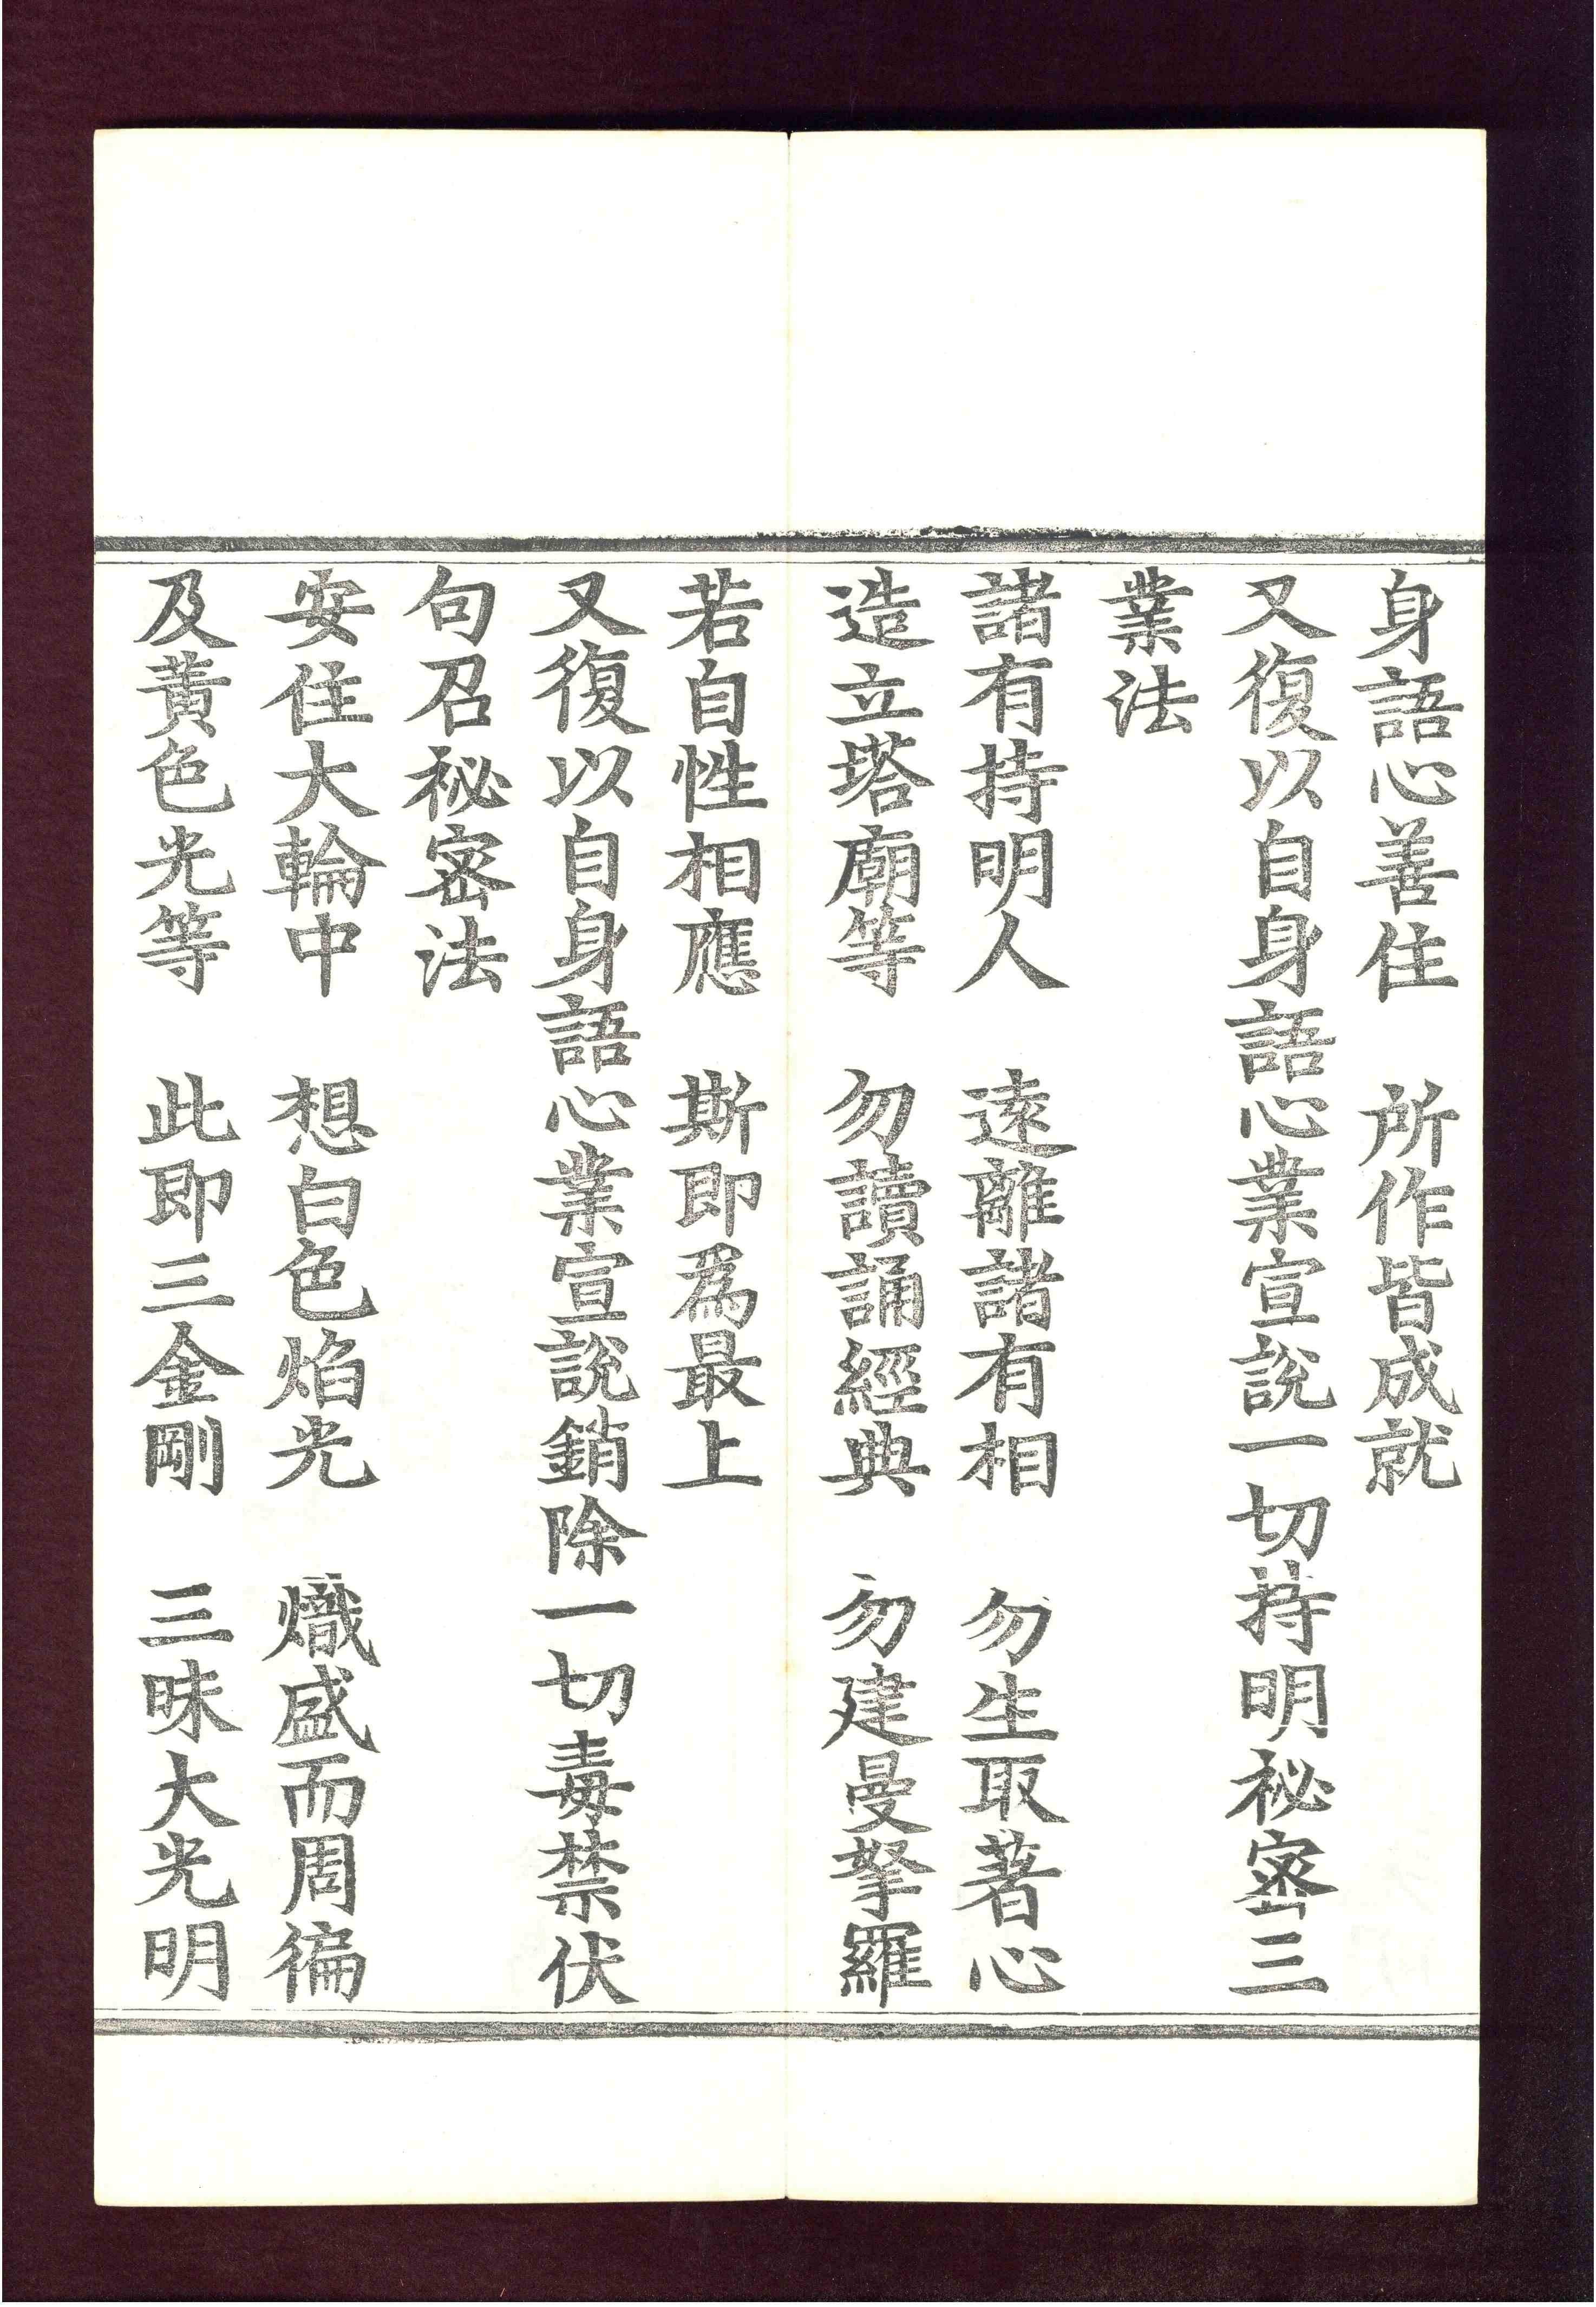 身語心善住　所作皆成就
又復以自身語心業宣說一切持明秘密三
業法
諸有持明人　遠離諸有相　勿生取著心
造立塔廟等　勿讀誦經典　勿建曼拏羅
若自性相應　斯即爲最上
又復以自身語心業宣說銷除一切毒禁伏
句召秘密法
安住大輪中　想白色焰光　熾盛而周徧
及黃色光等　此即三金剛　三昧大光明